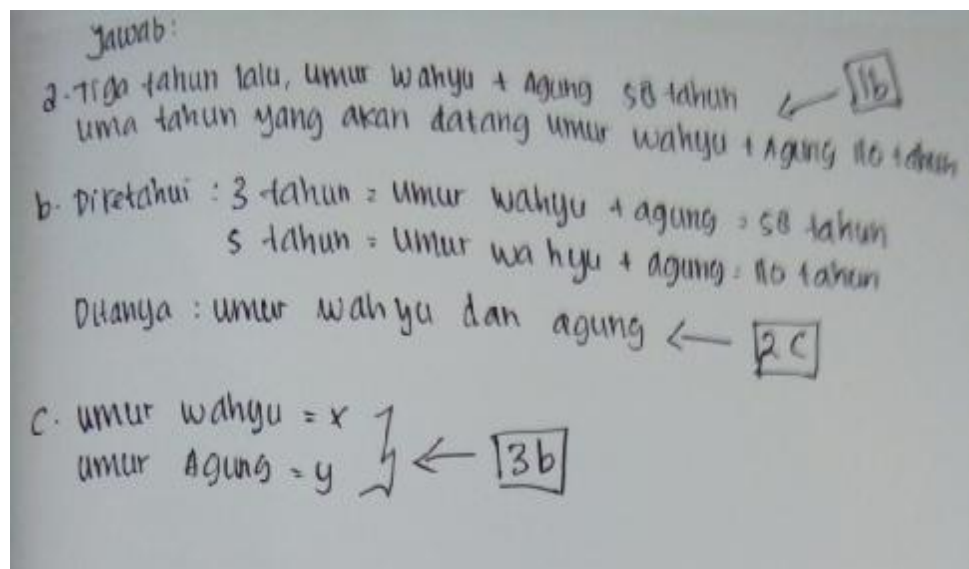 Jawab:
a. Tiga tahun lalu, umur wahyu + Agung 58 tahun
1b
Lima tahun yang akan datang umur wahyu + Agung 110 tahun
b. Diketahui : 3 tahun = umur wahyu + agung = 58 tahun
5 tahun = umur wahyu + agung = 110 tahun
Ditanya : umur wahyu dan agung
2c
c. umur wahyu = x
umur Agung = y
3b